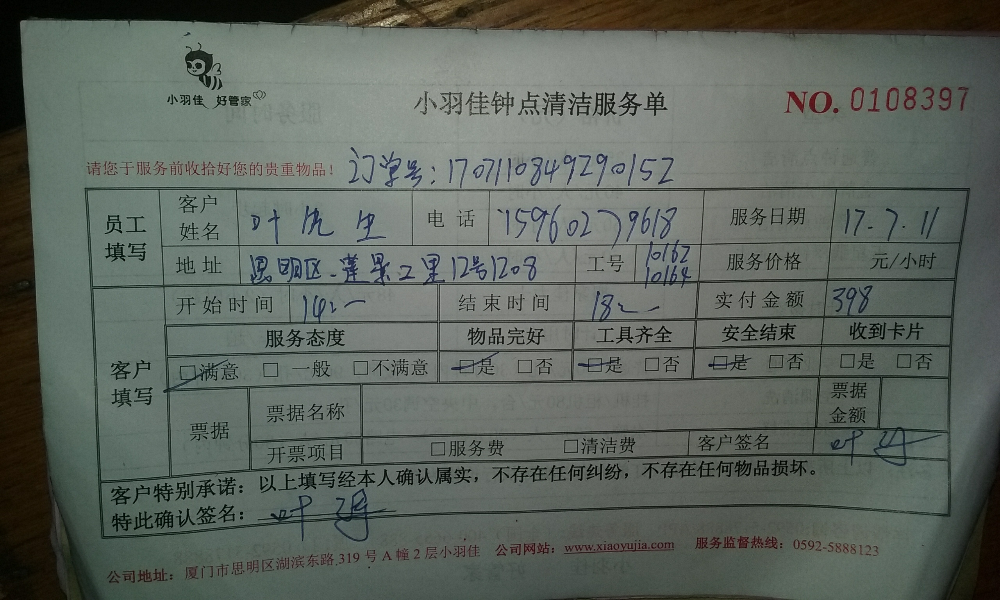 小羽佳 好管家
小羽佳钟点清洁服务单
NO. 0108397
请您于服务前收拾好您的贵重物品！ 订单号：1707110849290152
员工填写 客户姓名 叶先生 电话 15960279618 服务日期 17.7.11
地址 思明区 莲景二里12号1208 工号 10162 10164 服务价格 元/小时
客户填写 开始时间 14:— 结束时间 18:— 实付金额 398
服务态度 物品完好 工具齐全 安全结束 收到卡片
□满意 □一般 □不满意 □是 □否 □是 □否 □是 □否 □是 □否
票据 票据名称 票据金额
开票项目 □服务费 □清洁费 客户签名 叶
客户特别承诺：以上填写经本人确认属实，不存在任何纠纷，不存在任何物品损坏。
特此确认签名： 叶
公司地址：厦门市思明区湖滨东路319号A幢2层小羽佳 公司网站：www.xiaoyujia.com 服务监督热线：0592-5888123